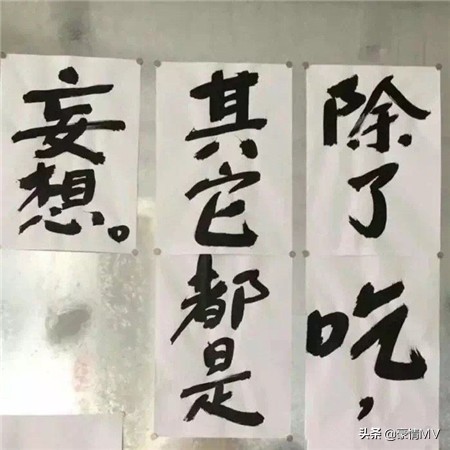 除了吃，
其它都是
妄想。
头条 @豪情MV